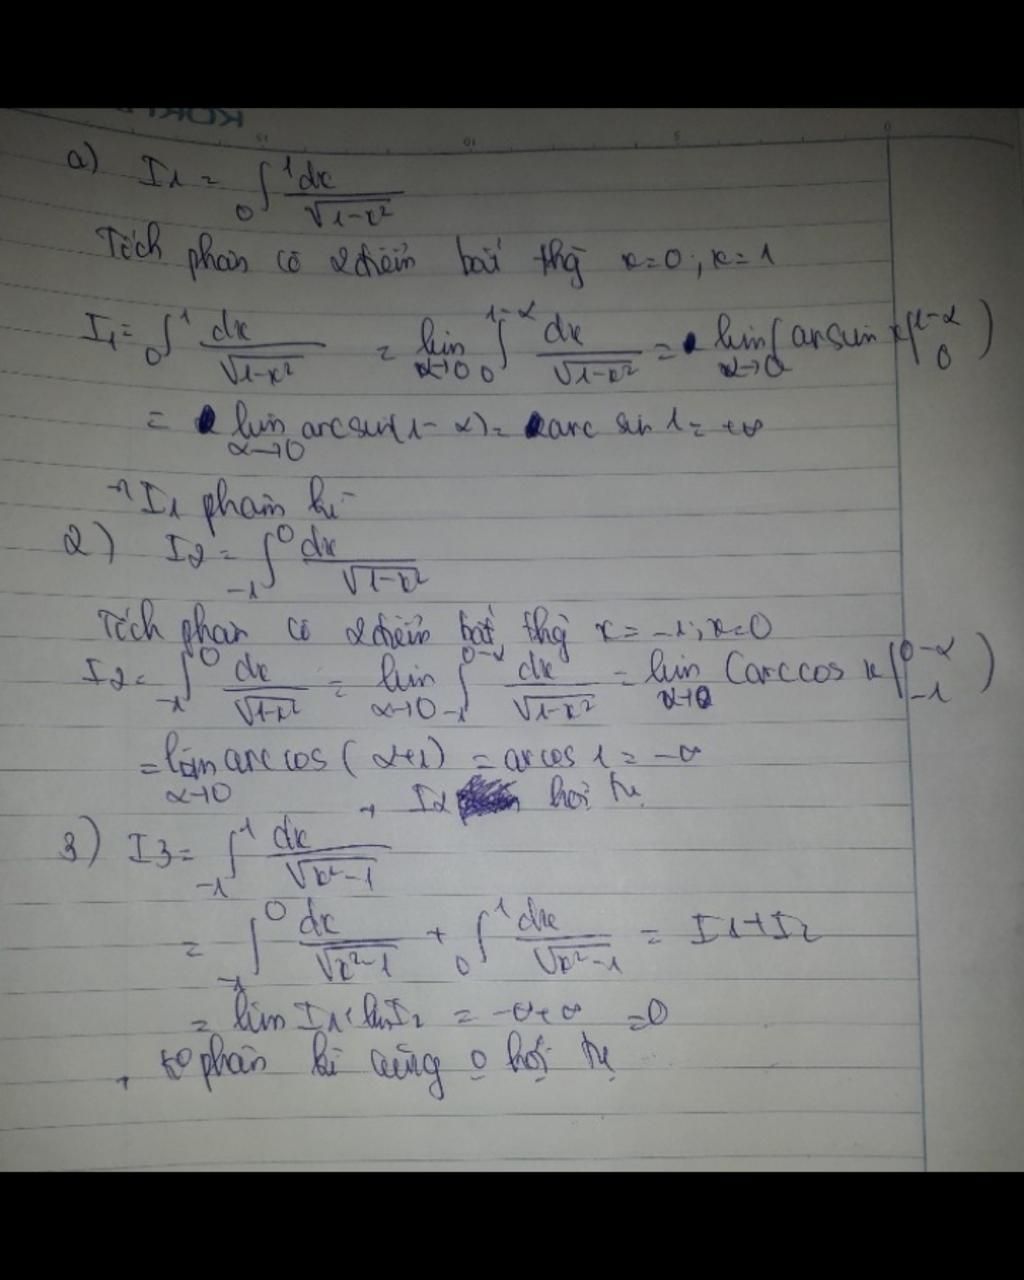 a) I1 = ∫₀¹ dx/√(1-x²)
Tích phân có 2 điểm bất thg x=0; x=1
I1 = ∫₀¹ dx/√(1-x²) = lim α→0 ∫₀^(1-α) dx/√(1-x²) = lim α→0 (arcsin x |₀^(1-α))
= lim α→0 arcsin(1-α) = arc sin 1 = +∞
→ I1 phân kì
2) I2 = ∫₋₁⁰ dx/√(1-x²)
Tích phân có 2 điểm bất thg x=-1; x=0
I2 = ∫₋₁⁰ dx/√(1-x²) = lim α→0 ∫₋₁^(0-α) dx/√(1-x²) = lim α→0 (arccos x |₋₁^(0-α))
= lim α→0 arccos(α+1) = arcos 1 = -∞
→ I2 hội tụ
3) I3 = ∫₋₁¹ dx/√(x²-1)
= ∫₋₁⁰ dx/√(x²-1) + ∫₀¹ dx/√(x²-1) = I1+I2
= lim I1 + lim I2 = -∞+∞ = 0
→ phân kì cũng o hội tụ